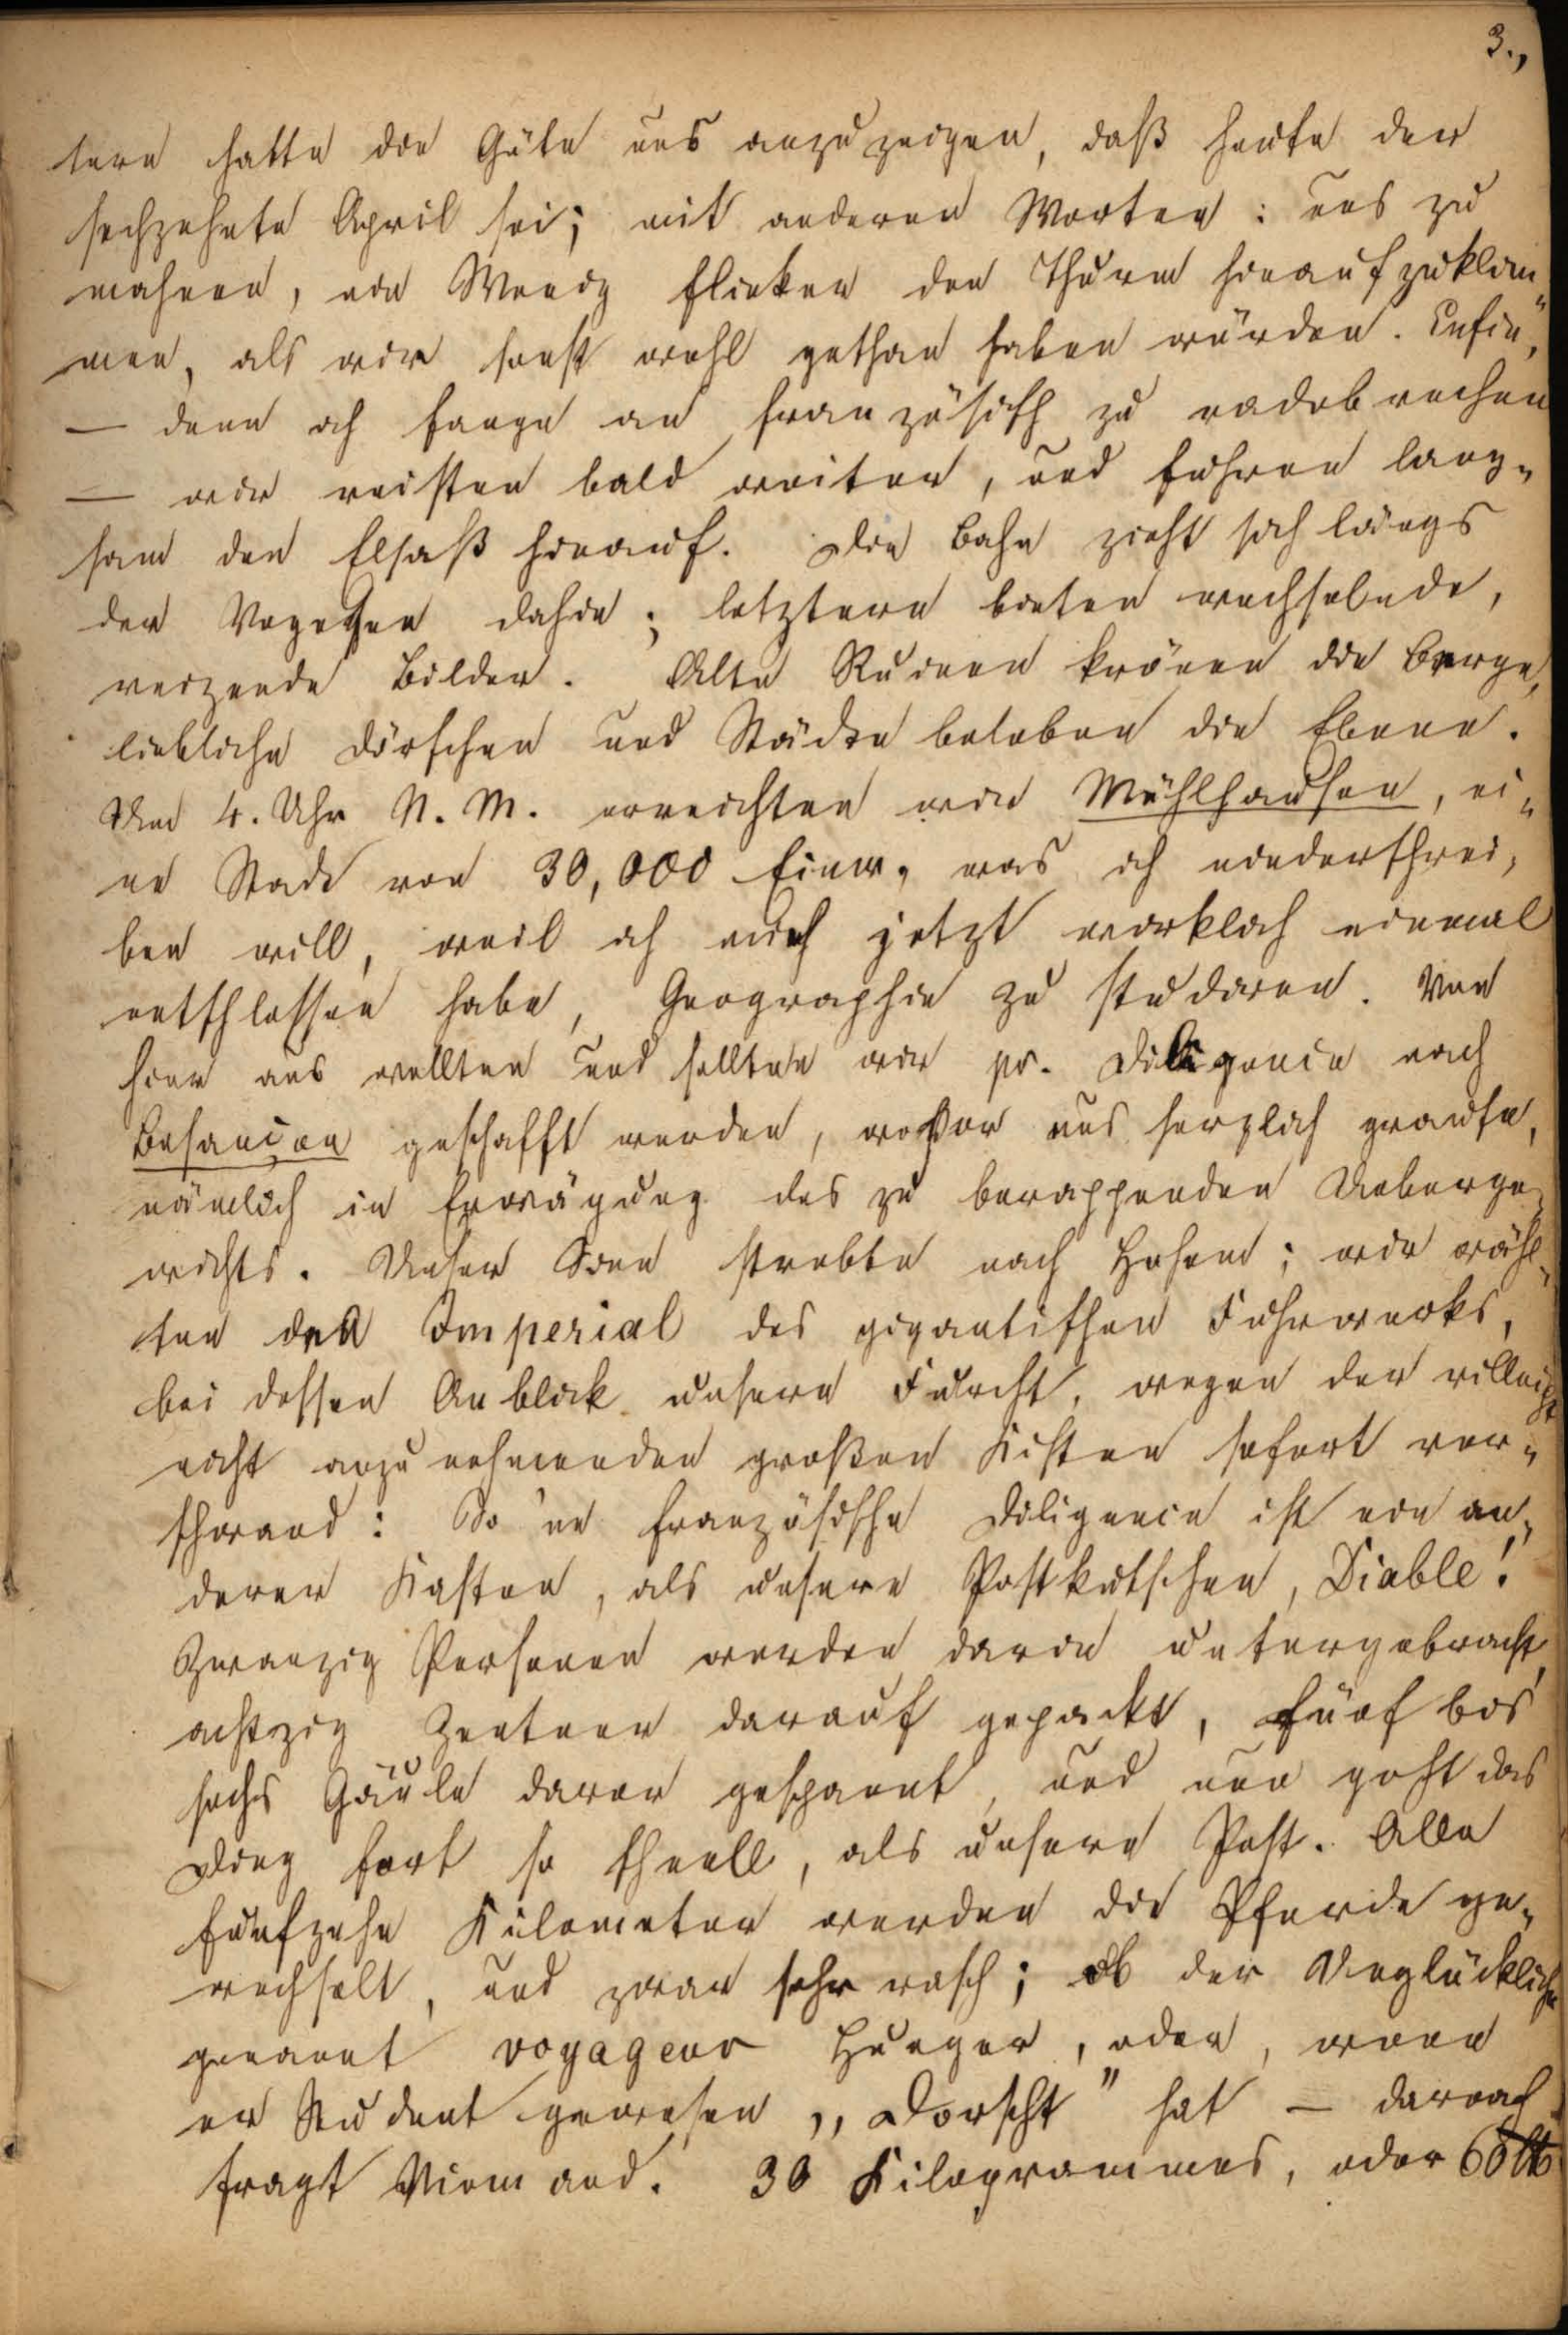 3.,
tere hatte die Güte uns anzuzeigen, daß heute der
sechzehnte April sei; mit anderen Worten: uns zu
mahnen, ein Wenig flinker den Thurm hinaufzuklim-
men, als wir sonst wohl gethan haben würden. Enfin,
— denn ich fange an französisch zu radebrechen
— wir reisten bald weiter, und fuhren lang-
sam den Elsaß hinauf. Die Bahn zieht sich längs
der Vogesen dahin; letztere bieten wechselnde,
reizende Bilder. Alte Ruinen krönen die Berge,
liebliche Dörfchen und Städte beleben die Ebene.
Um 4. Uhr N. M. erreichten wir Mühlhausen, ei-
ne Stadt von 30,000 Einw., was ich niederschrei-
ben will, weil ich mich jetzt wirklich einmal
entschlossen habe, Geographie zu studieren. Von
hier aus wollten und sollten wir pr. Diligence nach
Besançon geschafft werden, wovor uns herzlich grauste,
nämlich in Erwägung des zu berappenden Ueberge-
wichts. Unser Sinn strebte nach Hohem; wir wähl-
ten den Imperial des gigantischen Fuhrwerks,
bei dessen Anblick unsere Furcht, wegen der villeicht
nicht anzunehmenden großen Kisten sofort ver-
schwand: So 'ne französische Diligence ist ein an-
derer Kasten, als unsere Postkutschen, Diable!
Zwanzig Personen werden darin untergebracht,
achtzig Zentner darauf gepackt, fünf bis
sechs Gäule davor gespannt, und nun geht das
Ding fort so schnell, als unsere Post. Alle
fünfzehn Kilometer werden die Pferde ge-
wechselt, und zwar sehr rasch; ob der Unglückliche
genannt voyageur Hunger, oder, wenn
er Student gewesen „Dorscht" hat — darnach
fragt Niemand. 30 Kilogrammes, oder 60 ℔